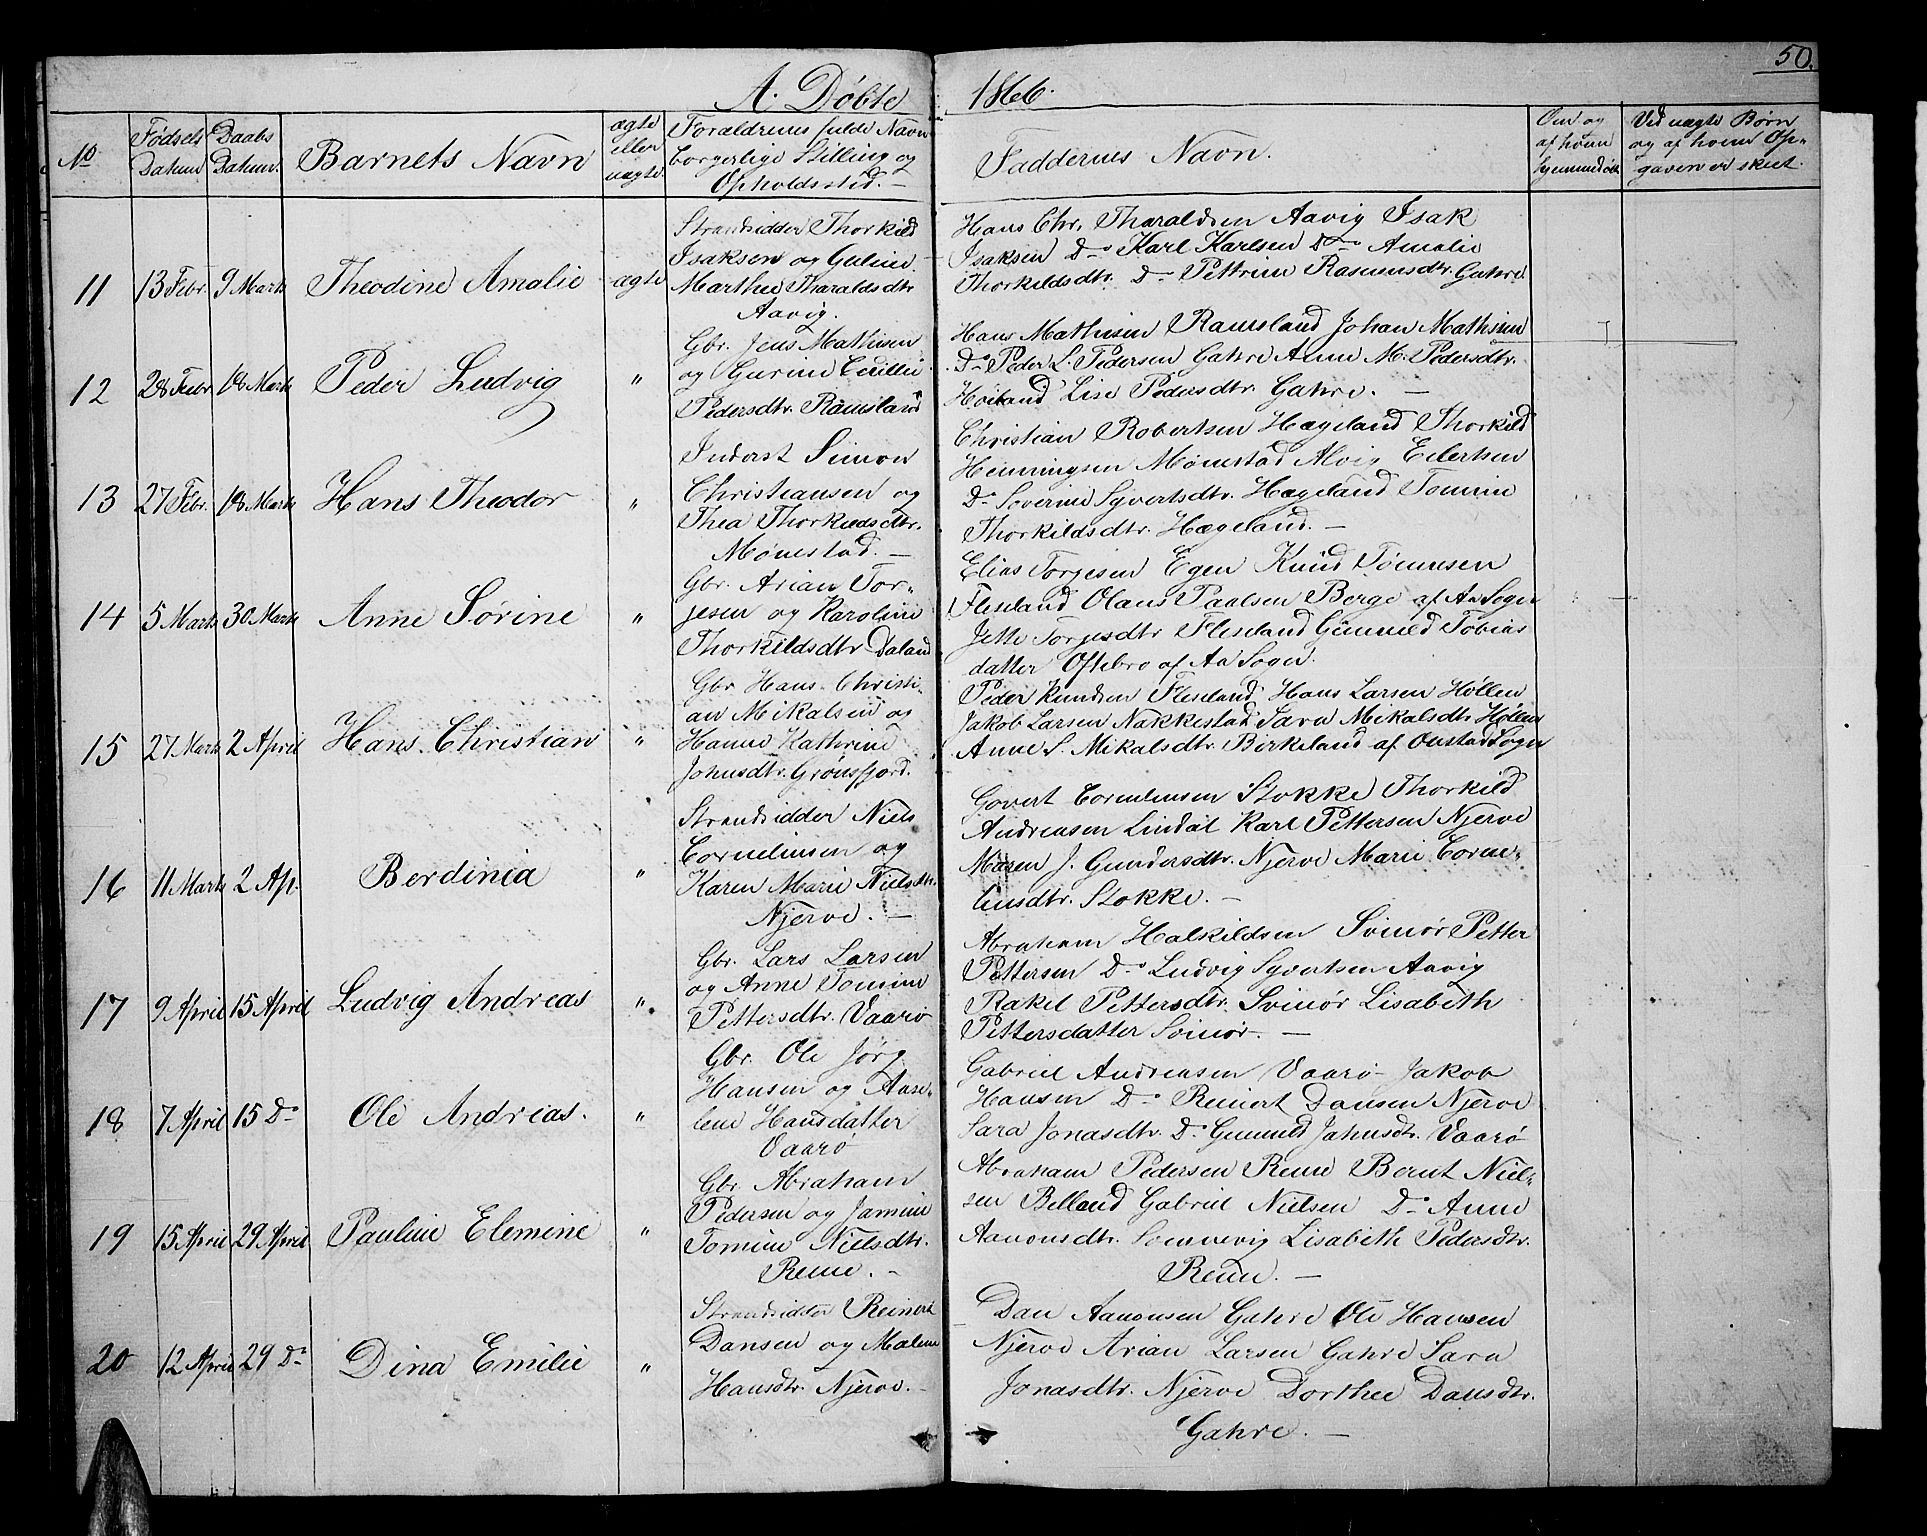 50.
A. Døbte 1866.
No
Fødsels Datum
Daabs Datum.
Barnets Navn
ægte eller uægte.
Forældrenes fulde Navn
borgerlige Stilling og
Opholdssted. —
Faddernes Navn.
Om og
af hvem
hjemmedøbt
Ved uægte Børn
og af hvem Op-
gaven er skeet.
11 13 Febr. 9 Marts Theodine Amalie ægte
Strandsidder Thorkild
Isaksen og Guline
Marthea Tharaldsdtr
Aavig.
Hans Chr. Tharaldsen Aavig Isak
Isaksen Do Karl Karlsen Do Amalie
Thorkildsdtr. Do Pettrine Rasmusdtr. Gahre.
12 28 Febr. 18 Marts Peder Ludvig "
Gbr. Jens Mathisen
og Gurine Cecilie
Pedersdtr. Ramsland
Hans Mathisen Ramsland Johan Mathisen
Do Peder L. Pedersen Gahre Anne M. Pedersdtr.
Høiland Lise Pedersdtr. Gahre. —
13 27 Febr. 18 Marts Hans Theodor "
Inderst Simon
Christiansen og
Thea Thorkildsdtr.
Mønestad. —
Christian Robertsen Hægeland Thorkild
Henningsen Mønestad Alvig Eilertsen
Do Soverine Syvertsdtr. Hægeland Tomine
Thorkildsdtr. Hægeland. —
14 5 Marts 30 Marts Anne Sørine "
Gbr. Arian Tor-
jesen og Karoline
Thorkildsdtr Daland
Elias Torjesen Egen Knud Tønnesen
Flesland Olaus Paalsen Berge af Aa Sogn
Jette Torjesdtr Flesland Gunnild Tobias
datter Oftebro af Aa Sogn.
15 27 Marts 2 April Hans Christian "
Gbr Hans Christi-
an Mikalsen og
Hanne Kathrine
Johnsdtr. Grønsfjord.
Peder Knudsen Flesland Hans Larsen Høllen
Jakob Larsen Nakkestad Sara Mikalsdtr Høllen
Anne S. Mikalsdtr. Birkeland af Oustad Sogn
16 11 Marts 2 Ap. Berdinia "
Strandsidder Niels
Corneliusen og
Karen Marie Nielsdtr.
Njerve. —
Govert Corneliusen Stokke Thorkild
Andreasen Lindal Karl Pettersen Njerve
Maren J. Gundersdtr. Njerve Marie Corne-
liusdtr. Stokke. —
17 9 April 15 April Ludvig Andreas "
Gbr. Lars Larsen
og Anne Tomine
Pettersdtr. Vaarø
Abraham Halkildsen Svinør Petter
Pettersen Do Ludvig Syvertsen Aavig
Rakel Pettersdtr. Svinør Lisabeth
Pettersdatter Svinør. —
18 7 April 15 Do Ole Andreas. "
Gbr. Ole Jørg.
Hansen og Aase-
lene Hansdatter
Vaarø
Gabriel Andreasen Vaarø Jakob
Hansen Do Reinert Dansen Njerve
Sara Jonasdtr. Do Gunnild Jahnsdtr. Vaarø
19 15 April 29 April Pauline Elemine "
Gbr. Abraham
Pedersen og Jamine
Tomine Nielsdtr.
Reme. —
Abraham Pedersen Reme Bernt Niel-
sen Belland Gabriel Nielsen Do Anne
Aanonsdtr. Somevig Lisabeth Pedersdtr.
Reme. —
20 12 April 29 Do Dina Emilie "
Strandsidder Reinert
Dansen og Malene
Hansdtr. Njerve. —
Dan Aanonsen Gahre Ole Hansen
Njerve Arian Larsen Gahre Sara
Jonasdtr. Njerve Dorthea Dansdtr.
Gahre. —